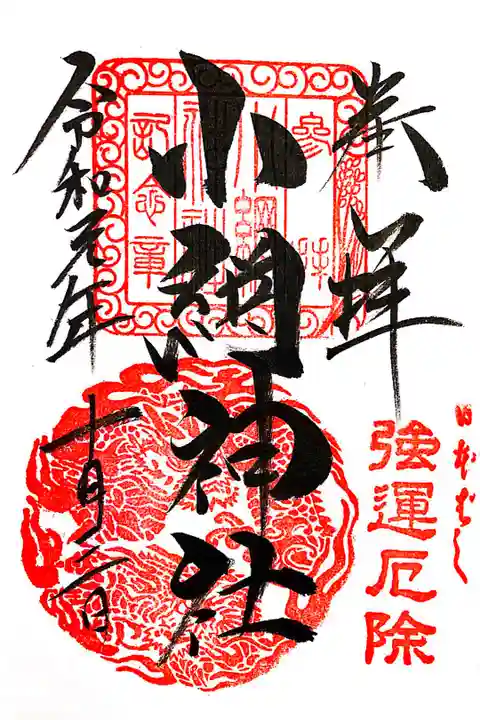 奉拝
日本ばし
強運厄除
參拝
小網神社
記念章
小網神社
令和元年
十月二日